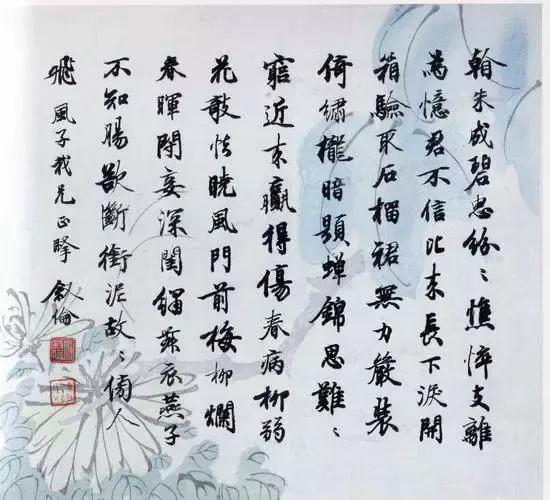 看朱成碧思紛〻憔悴支離
為憶君不信比來長下淚開
箱驗取石榴裙無力嚴裝
倚繡櫳暗題蟬錦思難〻
窮近來羸得傷春病柳弱
花欹怯曉風門前梅柳爛
春暉閉妾深閨繡舞衣燕子
不知腸欲斷銜泥故〻傍人
飛 風子我兄正 敘倫